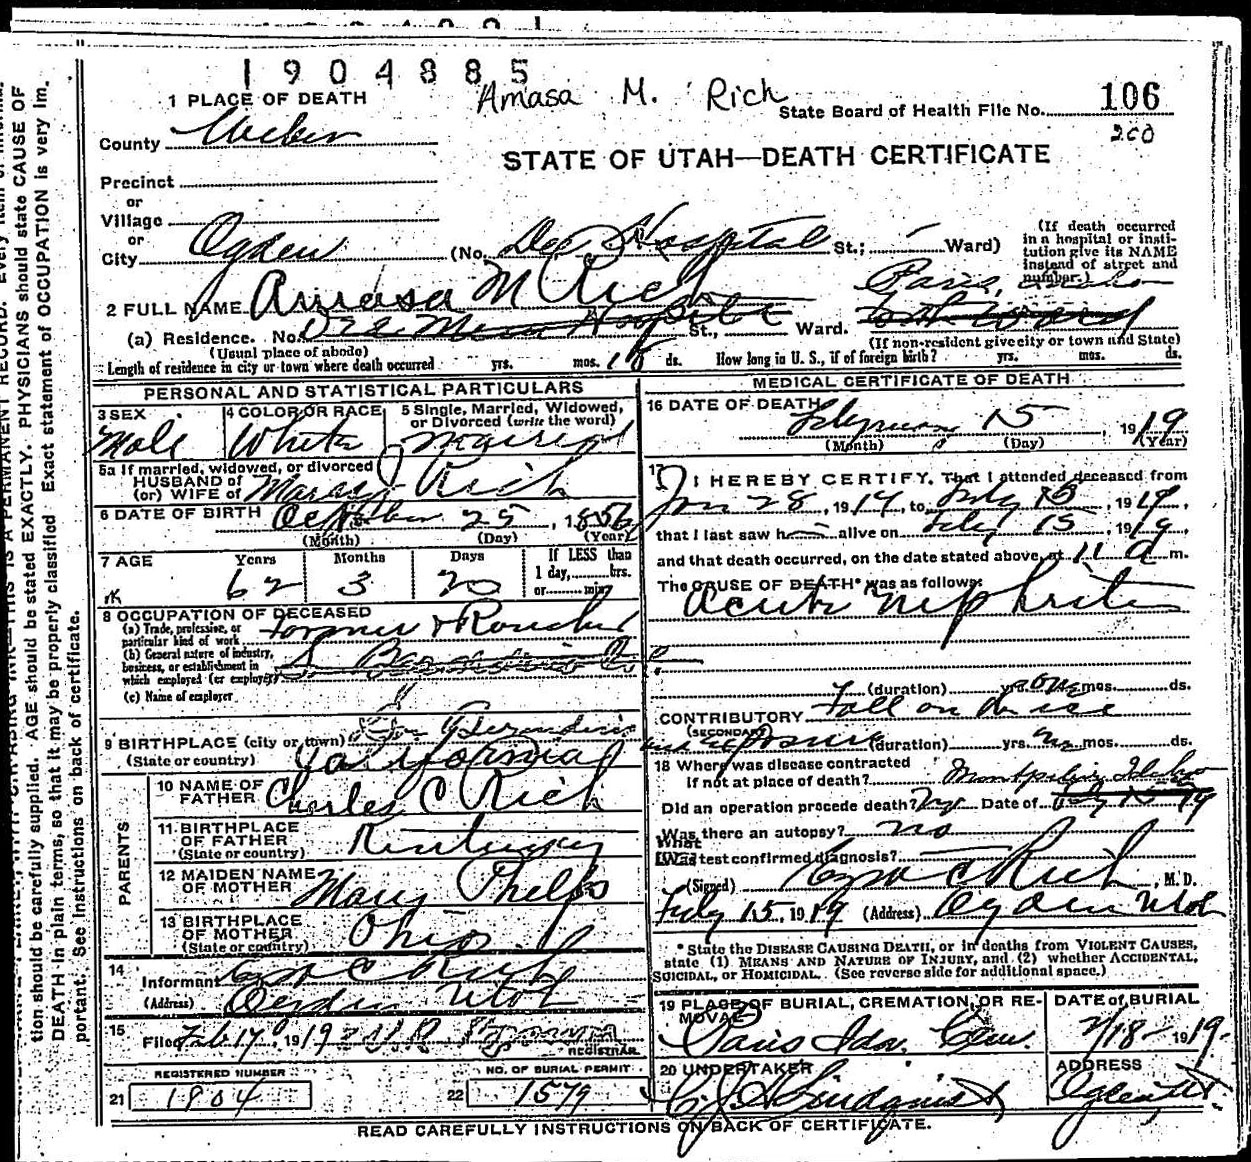 1904885
Amasa M. Rich
1 PLACE OF DEATH
State Board of Health File No. 106
200
County Weber
STATE OF UTAH—DEATH CERTIFICATE
Precinct
or
Village
or
City Ogden (No. Dee Hospital St.; Ward)
(If death occurred in a hospital or institution give its NAME instead of street and number.)
2 FULL NAME Amasa M Rich
Paris, Idaho
(a) Residence. No. Dee Mem Hospital St., Ward.
(Usual place of abode)
(If non-resident give city or town and State)
Length of residence in city or town where death occurred yrs. mos. 18 ds. How long in U. S., if of foreign birth? yrs. mos. ds.
PERSONAL AND STATISTICAL PARTICULARS
3 SEX Male
4 COLOR OR RACE White
5 Single, Married, Widowed, or Divorced (write the word) Married
5a If married, widowed, or divorced
HUSBAND of
(or) WIFE of Rich
6 DATE OF BIRTH October 25, 1856
(Month) (Day) (Year)
7 AGE Years Months Days If LESS than
62 3 20 1 day, hrs.
or min.
8 OCCUPATION OF DECEASED
(a) Trade, profession, or particular kind of work Farmer & Rancher
(b) General nature of industry, business, or establishment in which employed (or employer)
(c) Name of employer
9 BIRTHPLACE (city or town) San Bernardino
(State or country) California
PARENTS
10 NAME OF FATHER Charles C Rich
11 BIRTHPLACE OF FATHER (State or country) Kentucky
12 MAIDEN NAME OF MOTHER Mary Phelps
13 BIRTHPLACE OF MOTHER (State or country) Ohio
14 Informant Ezra C Rich
(Address) Ogden Utah
15 Filed Feb 17, 1919
REGISTRAR
REGISTERED NUMBER
21 1904
NO. OF BURIAL PERMIT
22 1579
MEDICAL CERTIFICATE OF DEATH
16 DATE OF DEATH February 15, 1919
(Month) (Day) (Year)
17 I HEREBY CERTIFY, That I attended deceased from
Jan 28, 1919, to Feby 15, 1919,
that I last saw h alive on Feby 15, 1919,
and that death occurred, on the date stated above, at 11 a m.
The CAUSE OF DEATH* was as follows:
Acute nephritis
(duration) yrs. one mos. ds.
CONTRIBUTORY Fall on the ice
(SECONDARY)
and exposure (duration) yrs. mos. ds.
18 Where was disease contracted
if not at place of death? Montpelier, Idaho
Did an operation precede death? Date of
Was there an autopsy? no
What test confirmed diagnosis?
(Signed) Ezra C Rich, M. D.
Feby 15, 1919 (Address) Ogden Utah
*State the DISEASE CAUSING DEATH, or in deaths from VIOLENT CAUSES,
state (1) MEANS AND NATURE OF INJURY, and (2) whether ACCIDENTAL,
SUICIDAL, or HOMICIDAL. (See reverse side for additional space.)
19 PLACE OF BURIAL, CREMATION, OR REMOVAL
Paris Ida. Cem.
DATE of BURIAL
2/18-1919.
20 UNDERTAKER
Lindquist
ADDRESS
Ogden Ut.
READ CAREFULLY INSTRUCTIONS ON BACK OF CERTIFICATE.
tion should be carefully supplied. AGE should be stated EXACTLY. PHYSICIANS should state CAUSE OF
DEATH in plain terms, so that it may be properly classified. Exact statement of OCCUPATION is very im-
portant. See instructions on back of certificate.